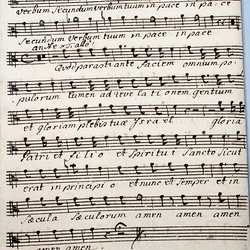 verbum secundum verbum tuum in pace in pace
secundum verbum tuum in pace in pace
Quod parasti ante faciem omnium po
pulorum lumen ad reve la ti onem gentium
et gloriam plebis tuæ Israel gloria
Patri et Filio et Spiritui Sancto sicut
erat in principio et nunc et semper et in
sæcula sæculorum amen amen amen
amen amen